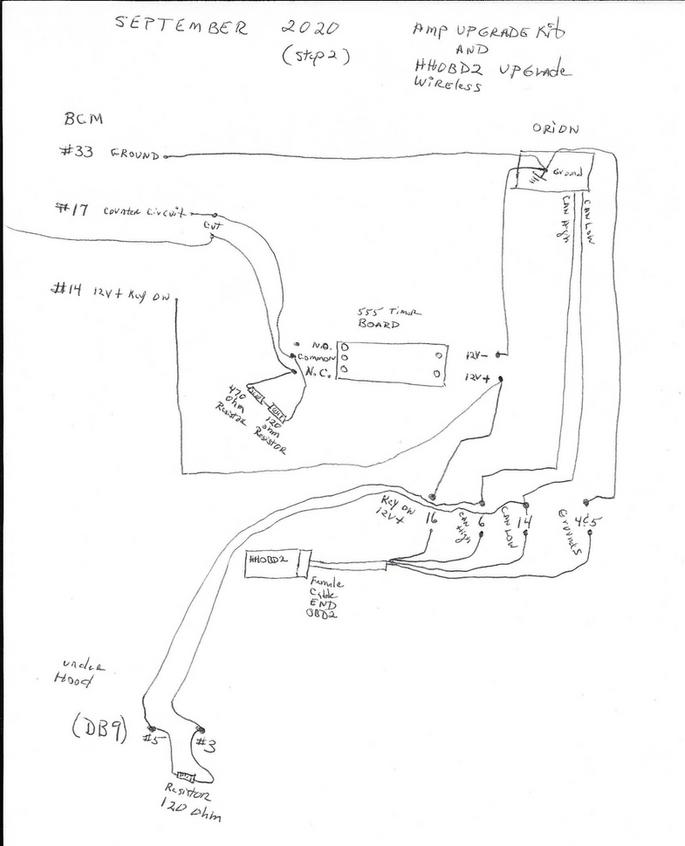 SEPTEMBER 2020
(step 2)
AMP UPGRADE Kit
AND
HHOBD2 UPGrade
Wireless
BCM
ORION
#33 GROUND
Ground
#17 Counter Circuit
Cut
CAN High
CAN LOW
#14 12V+ Key ON
555 Timer
BOARD
N.O.
Common
N.C.
12V-
12V+
470
ohm
Resistor
120
ohm
Resistor
Key ON
12V+
16
CAN
High
6
CAN LOW
14
Grounds
4&5
HHOBD2
Female
Cable
END
OBD2
under
Hood
(DB9)
#5
#3
Resistor
120 ohm